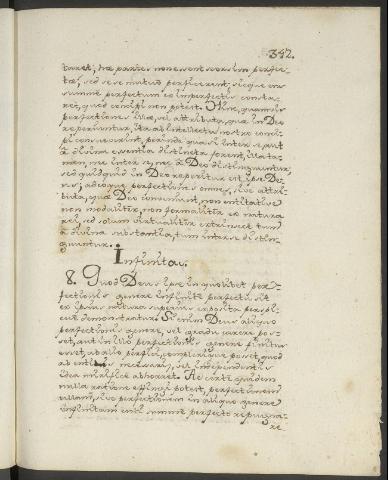 342.
taret, hæ partes non essent seorsim perfec-
tæ, sed se se mutuò perficerent, sicque ens
summe perfectum ex imperfectis consta-
ret, quod concipi non potest. Hinc, quamvis
perfectiones illæ, vel attributa, quæ in Deo
reperiuntur, ita ab intellectu nostro conci-
pi consueverint, perinde quasi inter se, aut
à divina essentia distincta forent, illa ta-
men, nec inter se, nec à Deo distinguuntur,
sed quidquid in Deo reperitur est ipse De-
us; adeoque perfectiones omnes, sive attri-
buta, quæ Deo conveniunt, non entitative
non modaliter, non formaliter ex natura
rei, sed solum virtualiter extrinsece tum
à divina substantia, tum inter se distin-
guuntur.
Infinitas.
8. Quod Deus ipse in quolibet per-
fectionis genere infinite perfectus sit
ex ipsius natura superius exposita perspi-
cue demonstratur. Si enim Deus aliquo
perfectionis genere, vel gradu carere pos-
set, aut in illo perfectionis genere finitus
esset, ab alio perfici, complerique posset, quod
ab entis necessarii, vel independentis
idea mirifice abhorret. Ac certe quidem
nulla ratione effingi potest, perfectionem
ullam, sive perfectionem in aliquo genere
infinitam enti summe perfecto repugna-
re